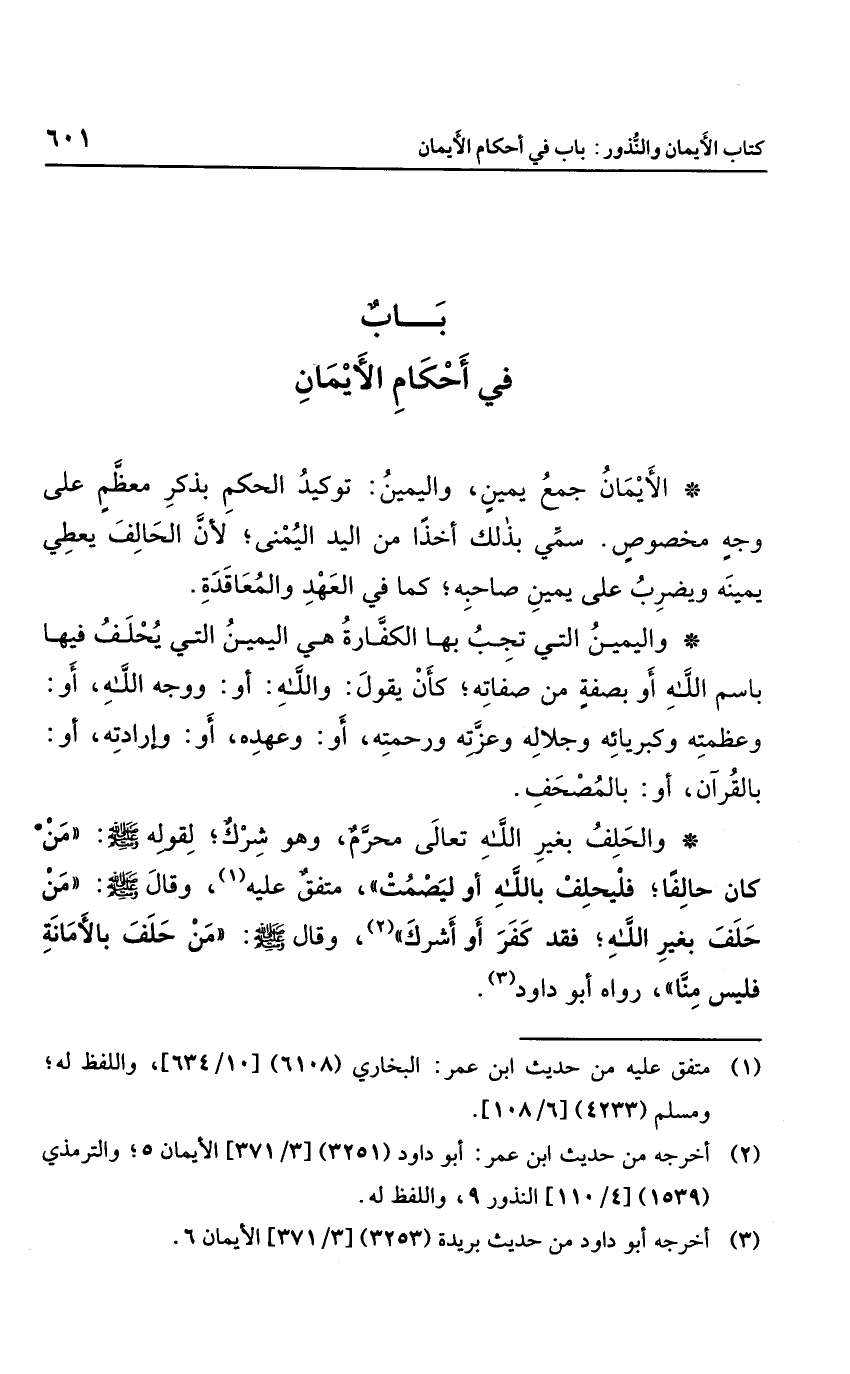 كتاب الأَيمان والنُّذور: باب في أحكام الأَيمان ٦٠١
بَـــابٌ
في أَحْكَامِ الأَيْمَانِ
* الأَيْمَانُ جمعُ يمينٍ، واليمينُ: توكيدُ الحكمِ بذكرِ معظَّمٍ على
وجهٍ مخصوصٍ. سمِّي بذٰلك أخذًا من اليد اليُمْنى؛ لأنَّ الحَالِفَ يعطِي
يمينَه ويضرِبُ على يمينِ صاحبِه؛ كما في العَهْدِ والمُعَاقَدَةِ.
* واليمينُ التي تجِبُ بها الكفَّارةُ هي اليمينُ التي يُحْلَفُ فيها
باسم اللَّهِ أَو بصفةٍ من صفاتِه؛ كأَنْ يقولَ: واللَّهِ: أو: ووجه اللَّهِ، أَو:
وعظمتِه وكبريائِه وجلالِه وعزَّتِه ورحمتِه، أَو: وعهدِه، أَو: وإرادتِه، أو:
بالقُرآن، أو: بالمُصْحَفِ.
* والحَلِفُ بغيرِ اللَّهِ تعالَى محرَّمٌ، وهو شِرْكٌ؛ لِقولِه ﷺ: «مَنْ
كان حالِفًا؛ فلْيحلِفْ باللَّهِ أو ليَصْمُتْ»، متفقٌ عليه(١)، وقالَ ﷺ: «مَنْ
حَلَفَ بغيرِ اللَّهِ؛ فقد كَفَرَ أَو أَشركَ»(٢)، وقال ﷺ: «مَنْ حَلَفَ بالأَمَانَةِ
فليس مِنَّا»، رواه أبو داود(٣).
(١) متفق عليه من حديث ابن عمر: البخاري (٦١٠٨) [٦٣٤/١٠]، واللفظ له؛
ومسلم (٤٢٣٣) [١٠٨/٦].
(٢) أخرجه من حديث ابن عمر: أبو داود (٣٢٥١) [٣٧١/٣] الأيمان ٥؛ والترمذي
(١٥٣٩) [١١٠/٤] النذور ٩، واللفظ له.
(٣) أخرجه أبو داود من حديث بريدة (٣٢٥٣) [٣٧١/٣] الأيمان ٦.